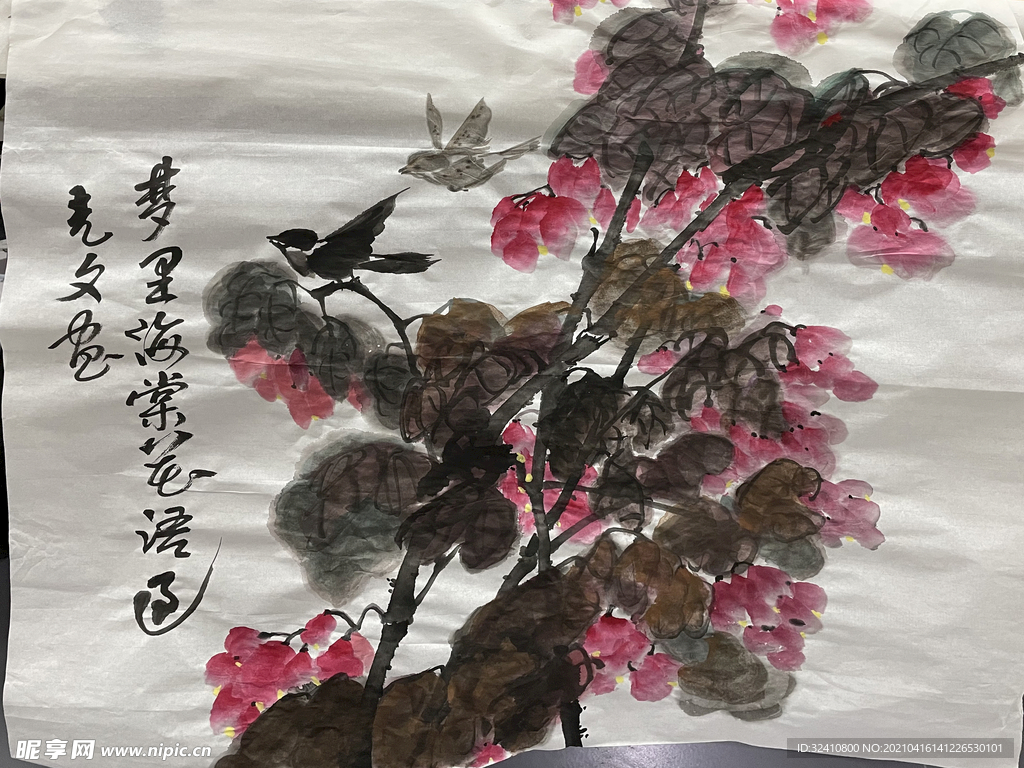 梦里海棠花语
光文画
昵享网 www.nipic.cn
ID:32410800 NO:20210416141226530101